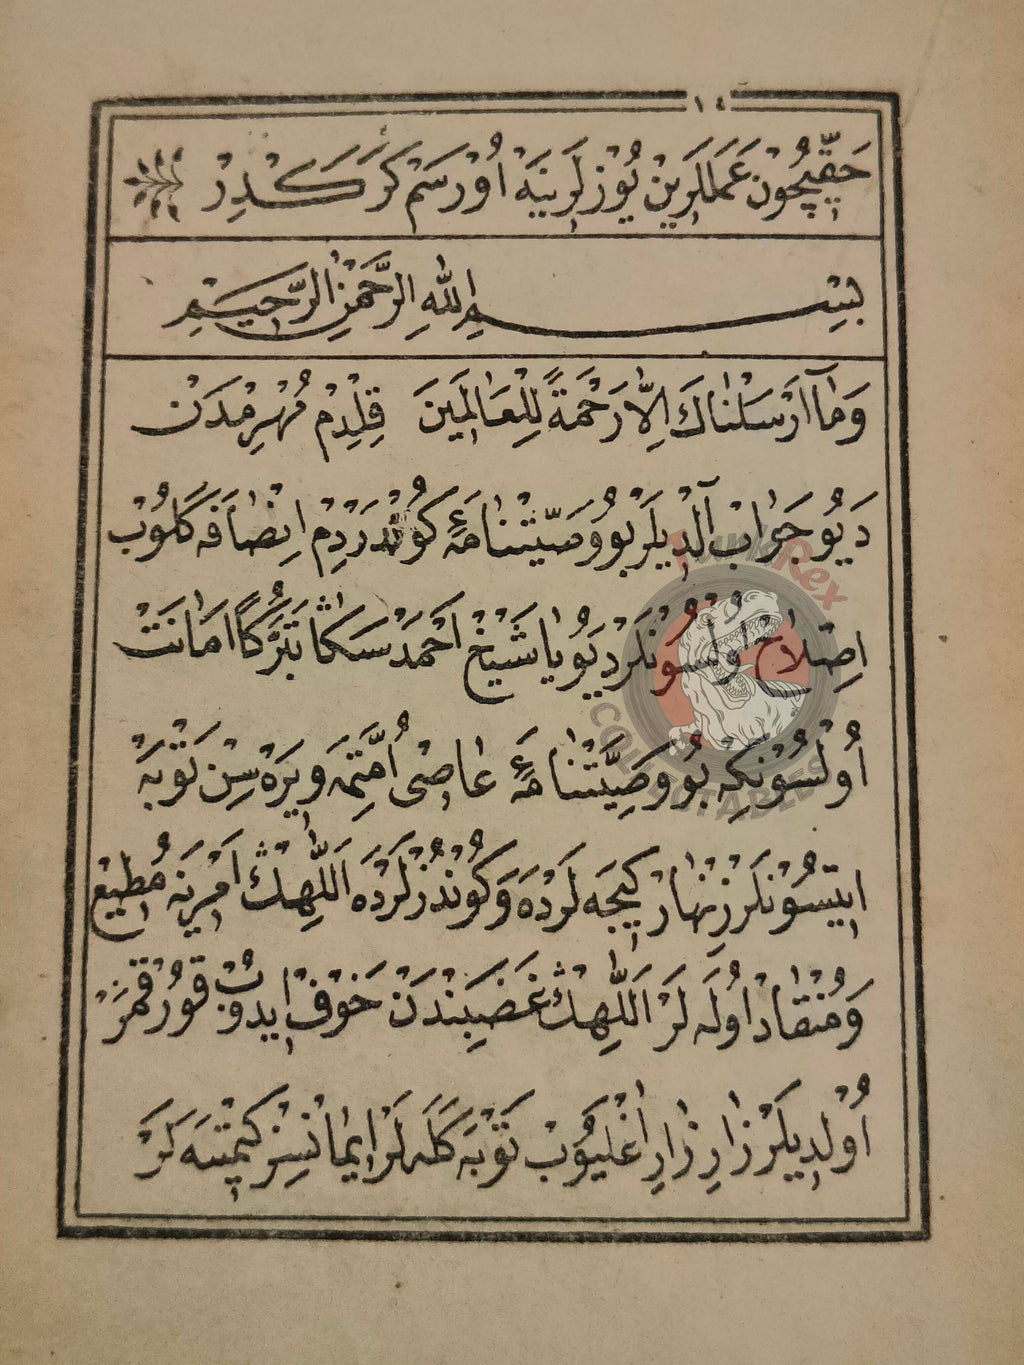 ١٤
حَقِّيچُون عَمَللَرِينْ يُوزلَرِينَه اُورسَمْ كَرَكْدِرْ
بِسْمِ اللهِ الرَّحْمٰنِ الرَّحِيمِ
وَمَآ اَرْسَلْنَاكَ اِلَّا رَحْمَةً لِلْعَالَمِينَ قِلْدِمْ مُهْرِمْدَنْ
دَيُو جَوَابْ آلْدِيلَرْ بُو وَسِّيَتْنَامَهءِ كُونْدَرْدِمْ اِنْصَافَه كَلُوبْ
اِصْلَاحْ اُولْسُونْلَرْ دِيُو يَا شَيْخْ اَحْمَدْ سَكَا تَبَرُّكًا اَمَانَتْ
اُولْسُونْكِه بُو وَصِيَّتْنَامَهءِ عَاصِى اُمَّتِمَه وِيرَه سِنْ تَوْبَه
اِيتْسُونْلَرْ زِنْهَارْ كِيجَه لَرْدَه وَ كُونْدُزْلَرْدَه اَللّٰهِكْ اَمْرِينَه مُطِيعْ
وَمُنْقَادْ اُولَه لَرْ اَللّٰهِكْ غَضَبِنْدَنْ خَوْفْ اِيدُوبْ قُورْقْمَزْ
اُولدِيلَرْ زَارِ زَارِ اَغْلَيُوبْ تَوْبَه كَلَه لَرْ اِيمَانْسِزْ كِيتْمِيَه لَرْ
Collectables